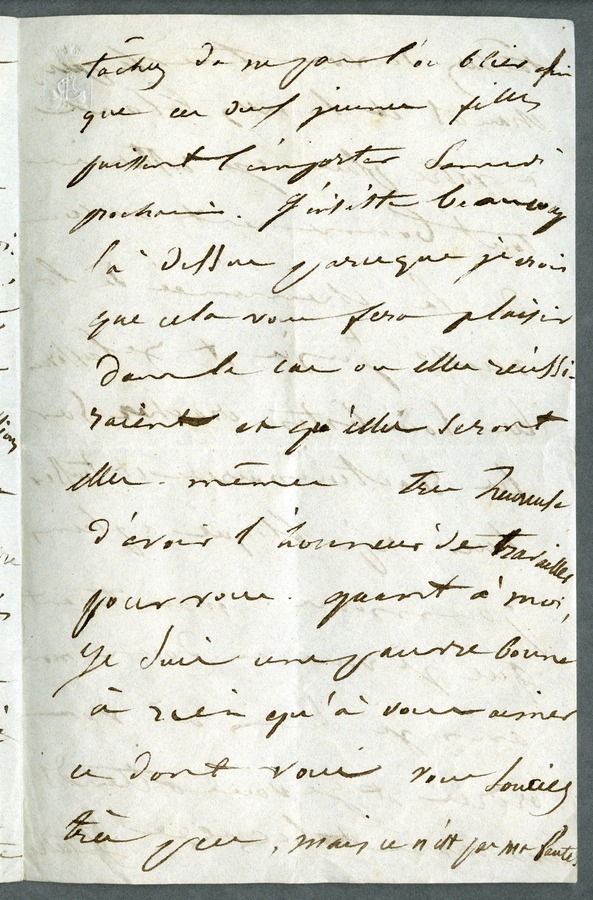 tâchez de ne pas l'oublier afin
que ces deux jeunes filles
puissent l'emporter Samedi
prochain. J'insiste beaucoup
là dessus parceque je crois
que cela vous fera plaisir
dans le cas où elles réussi-
raient et qu'elles seront
elles-mêmes très heureuses
d'avoir l'honneur de travailler
pour vous. quant à moi,
je suis une pauvre bonne
à rien qu'à vous aimer
ce dont vous vous souciez
très peu, mais ce n'est pas ma faute.